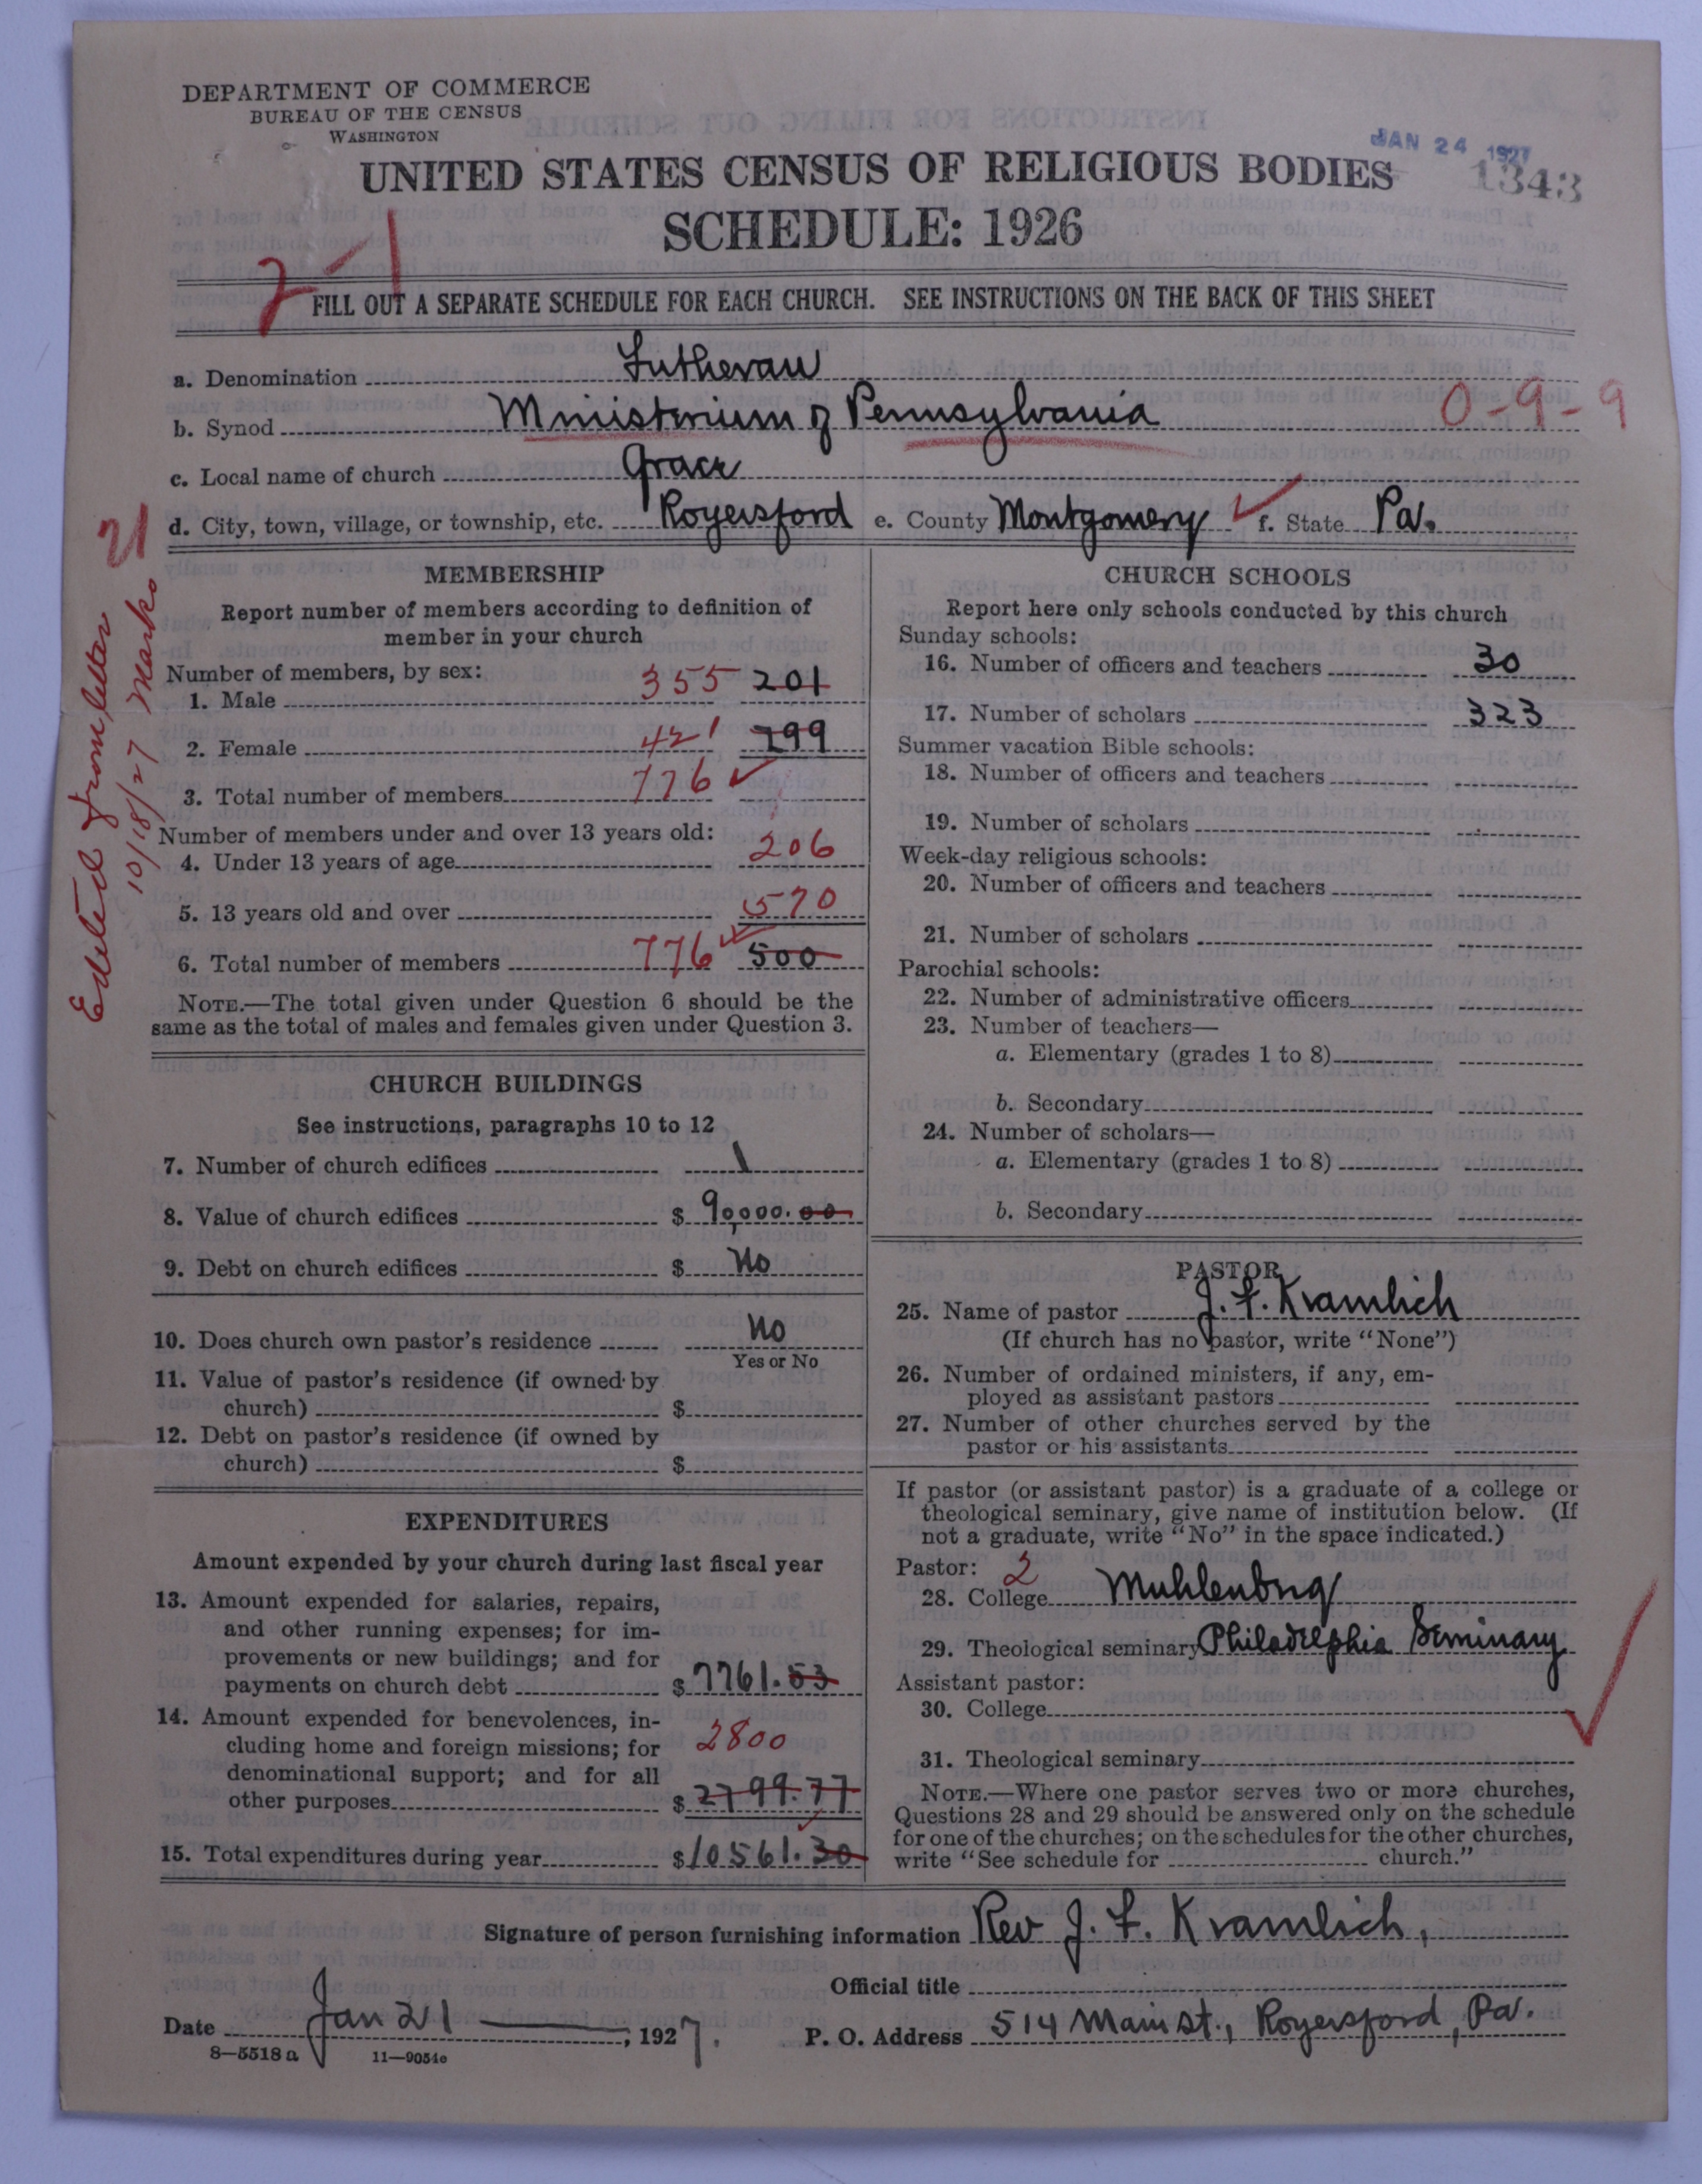 DEPARTMENT OF COMMERCE
BUREAU OF THE CENSUS
WASHINGTON
JAN 24 1927
1343
UNITED STATES CENSUS OF RELIGIOUS BODIES
SCHEDULE: 1926
2-1
FILL OUT A SEPARATE SCHEDULE FOR EACH CHURCH. SEE INSTRUCTIONS ON THE BACK OF THIS SHEET
a. Denomination Lutheran
b. Synod Ministerium of Pennsylvania 0-9-9
c. Local name of church Grace
d. City, town, village, or township, etc. Royersford e. County Montgomery ✓ f. State Pa.
21
Edited from letter
10/18/27 Marks
MEMBERSHIP
Report number of members according to definition of
member in your church
Number of members, by sex:
1. Male 355 201
2. Female 421 299
3. Total number of members 776 ✓
Number of members under and over 13 years old:
4. Under 13 years of age 206
5. 13 years old and over 570
6. Total number of members 776 ✓ 500
NOTE.—The total given under Question 6 should be the
same as the total of males and females given under Question 3.
CHURCH BUILDINGS
See instructions, paragraphs 10 to 12
7. Number of church edifices 1
8. Value of church edifices $ 90,000.00
9. Debt on church edifices $ No
10. Does church own pastor's residence No
Yes or No
11. Value of pastor's residence (if owned by
church) $
12. Debt on pastor's residence (if owned by
church) $
EXPENDITURES
Amount expended by your church during last fiscal year
13. Amount expended for salaries, repairs,
and other running expenses; for im-
provements or new buildings; and for
payments on church debt $ 7761.53
14. Amount expended for benevolences, in-
cluding home and foreign missions; for 2800
denominational support; and for all
other purposes $ 2799.77
15. Total expenditures during year $10561.30
CHURCH SCHOOLS
Report here only schools conducted by this church
Sunday schools:
16. Number of officers and teachers 30
17. Number of scholars 323
Summer vacation Bible schools:
18. Number of officers and teachers
19. Number of scholars
Week-day religious schools:
20. Number of officers and teachers
21. Number of scholars
Parochial schools:
22. Number of administrative officers
23. Number of teachers—
a. Elementary (grades 1 to 8)
b. Secondary
24. Number of scholars—
a. Elementary (grades 1 to 8)
b. Secondary
PASTOR
25. Name of pastor J. F. Kramlich
(If church has no pastor, write "None")
26. Number of ordained ministers, if any, em-
ployed as assistant pastors
27. Number of other churches served by the
pastor or his assistants
If pastor (or assistant pastor) is a graduate of a college or
theological seminary, give name of institution below. (If
not a graduate, write "No" in the space indicated.)
Pastor: 2
28. College Muhlenbrg
29. Theological seminary Philadelphia Seminary
Assistant pastor:
30. College
31. Theological seminary
NOTE.—Where one pastor serves two or more churches,
Questions 28 and 29 should be answered only on the schedule
for one of the churches; on the schedules for the other churches,
write "See schedule for church."
Signature of person furnishing information Rev J. F. Kramlich,
Official title
Date Jan 21 , 1927. P. O. Address 514 Main St., Royersford, Pa.
8—5518 a 11—9051c